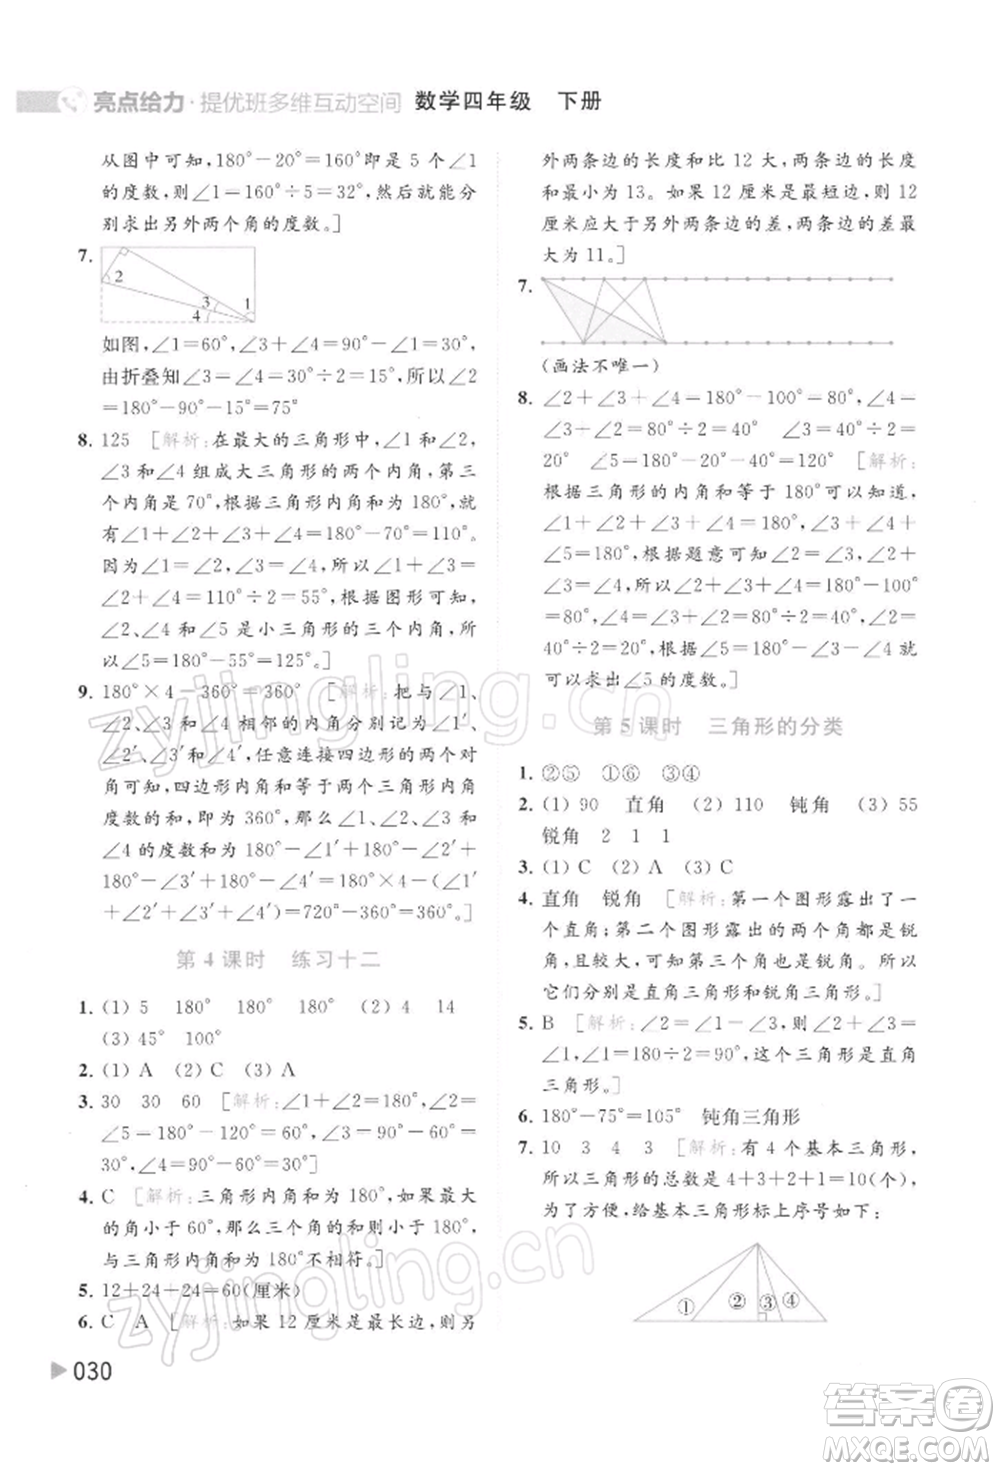 亮点给力·提优班多维互动空间 数学四年级 下册
从图中可知，180°－20°＝160°即是 5 个∠1
的度数，则∠1＝160°÷5＝32°，然后就能分
别求出另外两个角的度数。]
7.
2
3
1
4
如图，∠1＝60°，∠3＋∠4＝90°－∠1＝30°，
由折叠知∠3＝∠4＝30°÷2＝15°，所以∠2
＝180°－90°－15°＝75°
8. 125 [解析：在最大的三角形中，∠1和∠2，
∠3 和∠4 组成大三角形的两个内角，第三
个内角是 70°，根据三角形内角和为 180°，就
有∠1＋∠2＋∠3＋∠4＝180°－70°＝110°。
因为∠1＝∠2，∠3＝∠4，所以∠2＋∠4＝
∠1＋∠3＝110°÷2＝55°，根据图形可知，
∠2、∠4、∠5 是小三角形的三个内角，所
以，∠5＝180°－55°＝125°。]
9. 180°×4－360°＝360° [解析：把与∠1、
∠2、∠3、∠4 相邻的内角分别记为∠1′、
∠2′、∠3′、∠4′，任意连接四边形的两个对
角可知，四边形内角和等于两个三角形内角
度数的和，即为 360°，那么∠1、∠2、∠3、
∠4 的度数和为 180°×4－(∠1′＋∠2′＋
∠3′＋∠4′)＝720°－360°＝360°。]
第 4 课时 练习十二
1. (1) 5 180° 180° 180° (2) 4 14
(3) 45° 100°
2. (1) A (2) C (3) A
3. 30 30 60 [解析：∠1＋∠2＝
∠5＝180°－120°＝60°，∠1＝∠2＝
30°，∠4＝90°－30°＝60°]
4. C [解析：三角形内角和为 180°，如果最大
的角小于 60°，那么三个角的和则小于 180°，
与三角形内角和为 180°不相符。]
5. 12＋24＋24＝60(厘米)
6. C A [解析：如果 12 厘米是最长边，则另
外两条边的长度和比 12 大，两条边的长度
和最小为 13。如果 12 厘米是最短边，则 12
厘米应大于另外两条边的差，两条边的差最
大为 11。]
7.
(画法不唯一)
8. ∠2＋∠3＋∠4＝180°－100°＝80°，∠4＝
∠2＋∠3＝80°÷2＝40° ∠2＝∠3＝40°÷2＝
20° ∠5＝180°－20°－20°＝140° [解析：
根据三角形的内角和等于 180°可以知道，
∠1＋∠2＋∠3＋∠4＝180°，∠2＋∠3＋
∠5＝180°，根据题意可知∠2＝∠3，∠2＋
∠3＝∠4，所以∠2＋∠3＋∠4＝180°－100°
＝80°，∠4＝∠2＋∠3＝80°÷2＝40°，∠2＝
40°÷2＝20°，∠3＝∠2＝20°，这样就
可以求出∠5 的度数。]
第 5 课时 三角形的分类
1. ②⑤ ①⑥ ③④
2. (1) 90 直角 (2) 110 钝角 (3) 55
锐角 2 1 1
3. (1) C (2) A (3) C
4. 直角 锐角 [解析：第一个图形露出了一
个直角；第二个图形露出的两个角都是锐
角，且较大，可知第三个角也是锐角。所以
它们分别是直角三角形和锐角三角形。]
5. B [解析：∠2＝∠1－∠3，则∠2＋∠3＝
∠1，∠1＝180°÷2＝90°，这个三角形是直角
三角形。]
6. 180°－75°＝105° 钝角三角形
7. 10 3 4 3 [解析：有 4 个基本三角形，
所以三角形的总数是 4＋3＋2＋1＝10(个)。
为了方便，给基本三角形标上序号如下：
① ② ③ ④
030
zyjingling.cn
zyjingling.cn
答案圈
MXQE.COM